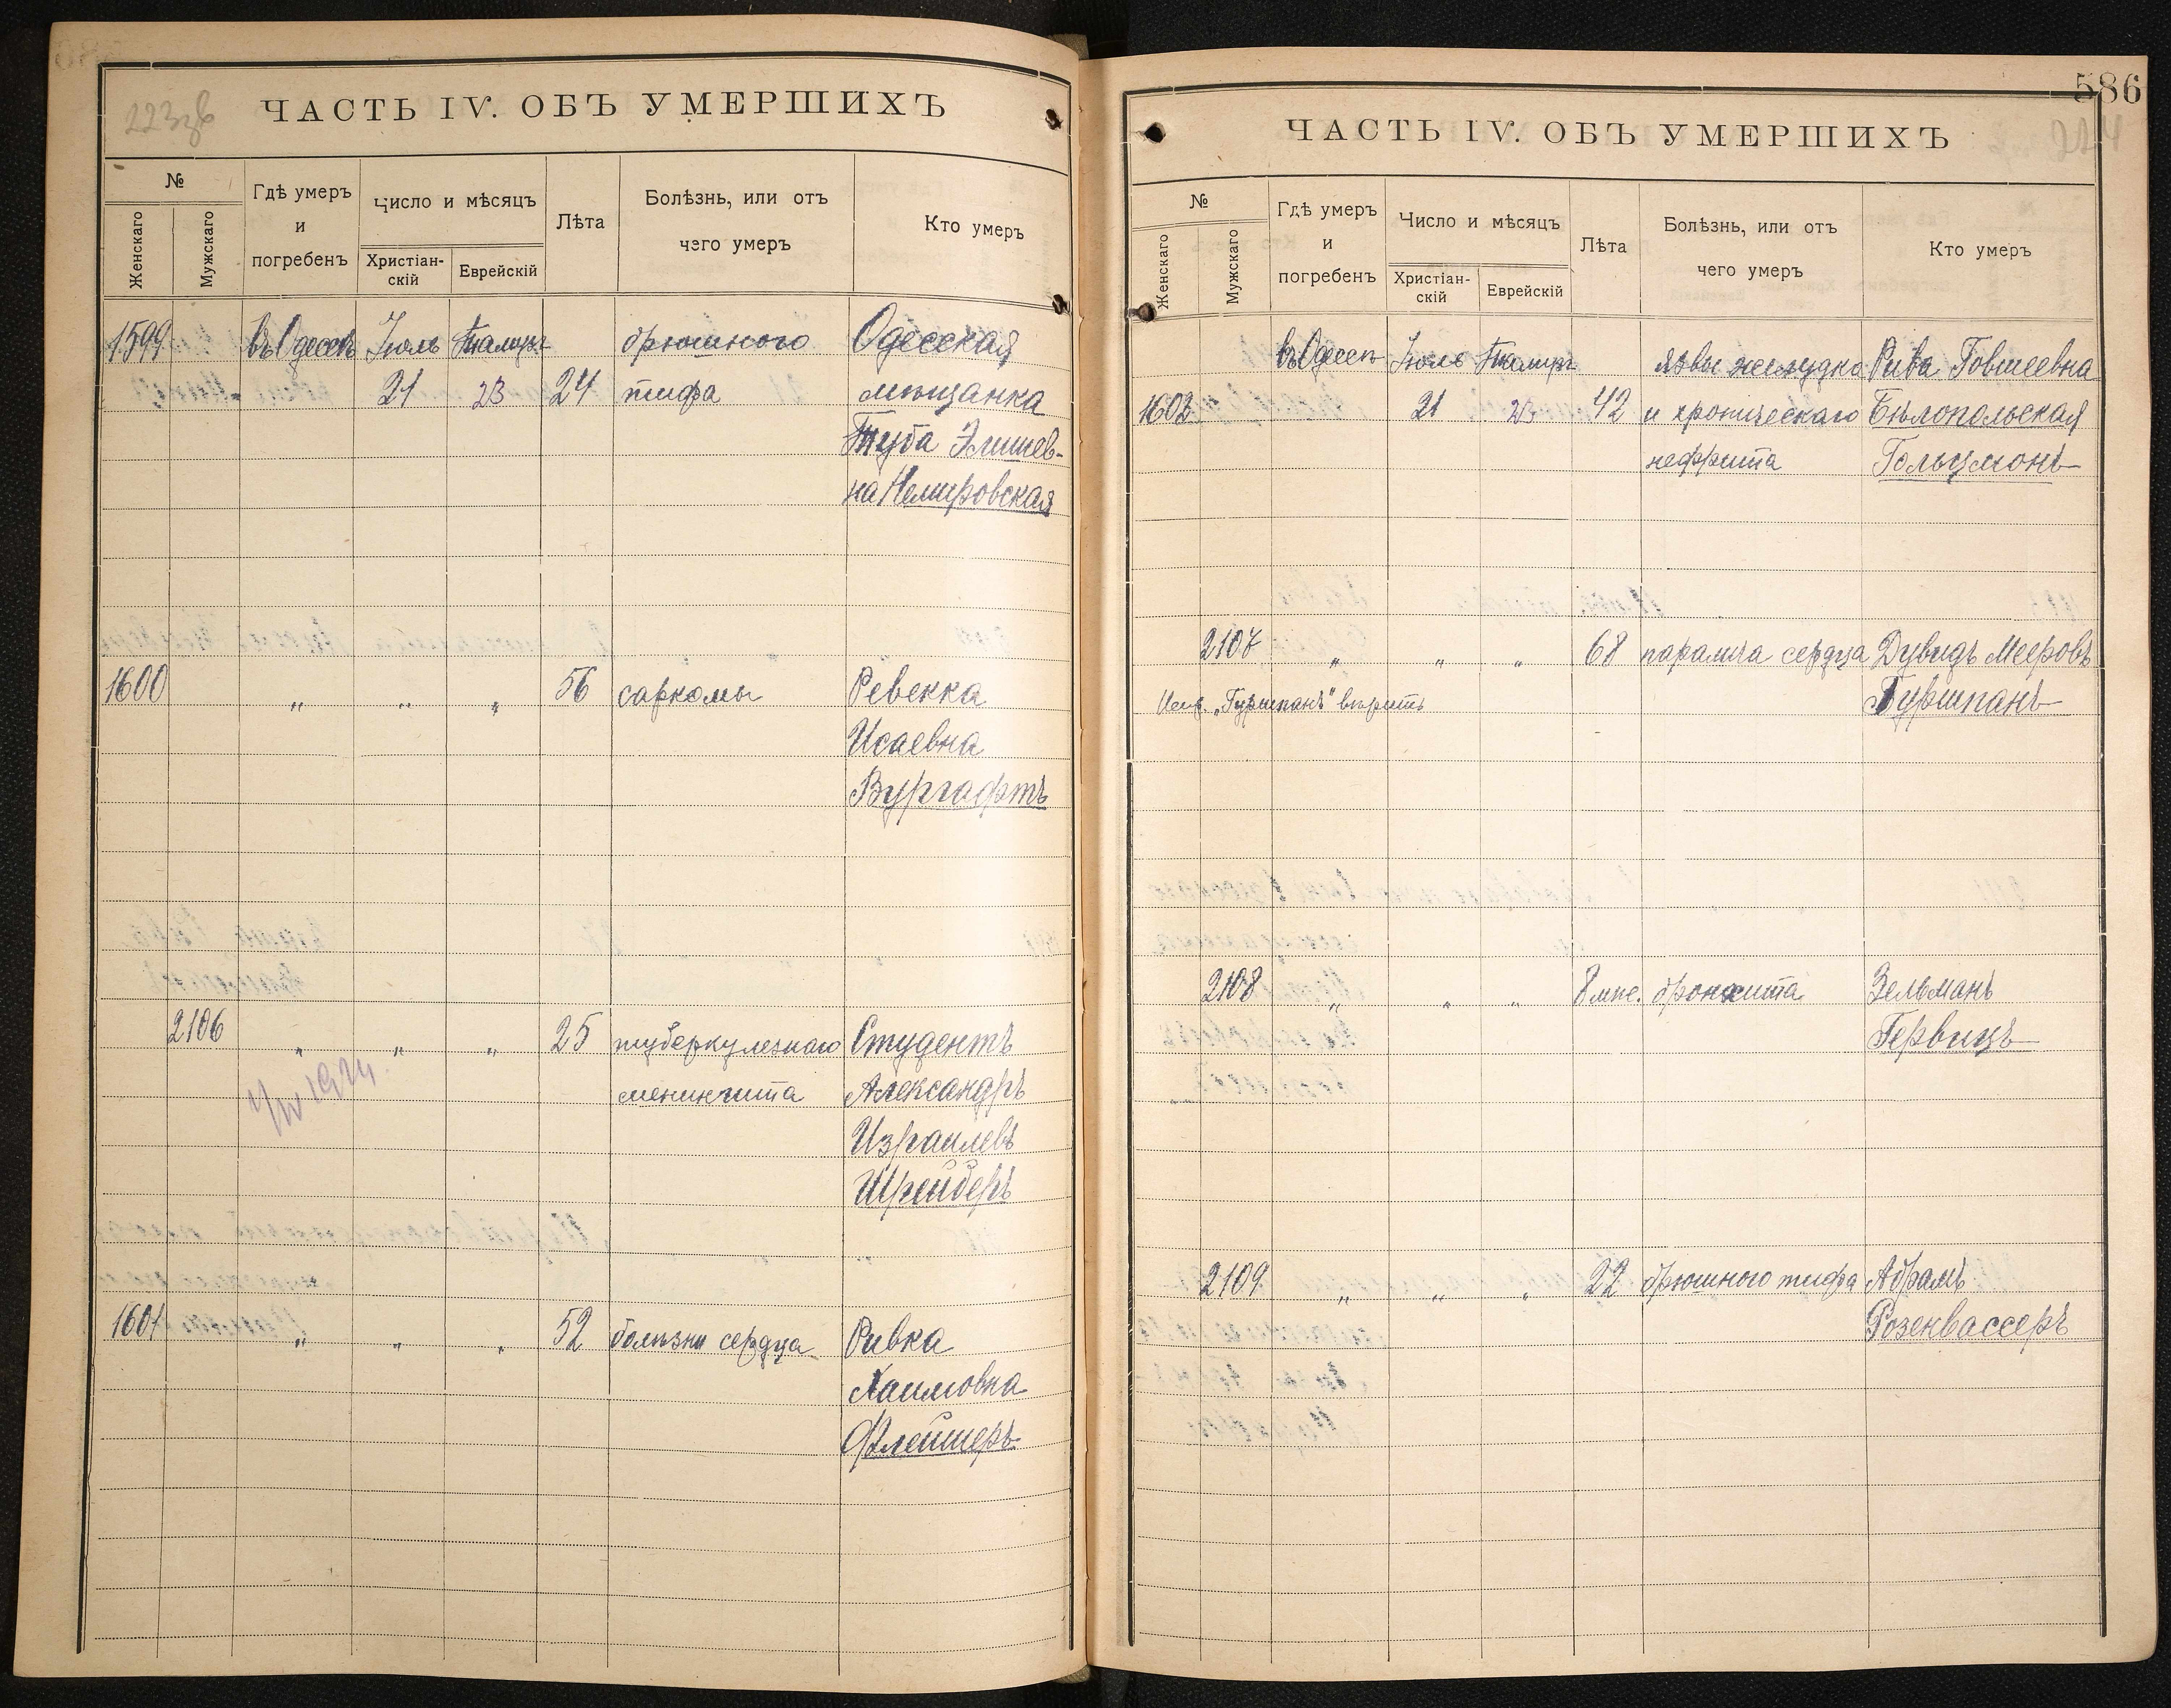 ЧАСТЬ IV. ОБЪ УМЕРШИХЪ
№
Женскаго
Мужскаго
Гдѣ умеръ
и
погребенъ
Число и мѣсяцъ
Христіан-
скій
Еврейскій
Лѣта
Болѣзнь, или отъ
чего умеръ
Кто умеръ
1599 въ Одессѣ Іюль Тамузъ брюшного Одесская
21 23 24 тифа мѣщанка
Туба Элишев-
на Немировская
1600 „ „ „ 56 саркомы Ревекка
Исаевна
Вургафтъ
2106 „ „ „ 25 туберкулезнаго Студентъ
менингита Александръ
1924
Израилевъ
Шрейберъ
1601 „ „ „ 52 болѣзни сердца Ривка
Хаимовна
Флейшеръ
586
224
ЧАСТЬ IV. ОБЪ УМЕРШИХЪ
№
Женскаго
Мужскаго
Гдѣ умеръ
и
погребенъ
Число и мѣсяцъ
Христіан-
скій
Еврейскій
Лѣта
Болѣзнь, или отъ
чего умеръ
Кто умеръ
въ Одессѣ Іюль Тамузъ язвы желудка Рива Говшеевна
1602 21 23 42 и хроническаго Бѣлопольская
нефрита Гольцманъ
2107 „ „ „ 68 паралича сердца Дувидъ Мееровъ
„Гуршпанъ" вѣрить Гуршпанъ
2108 „ „ „ 8 мѣс. бронхита Зельманъ
Гервицъ
2109 „ „ „ 22 брюшного тифа Абрамъ
Розенвассеръ